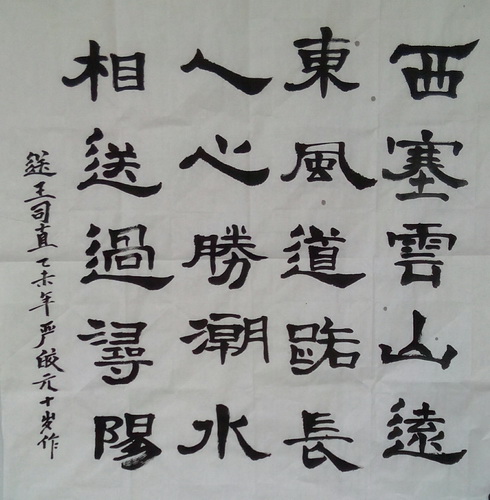 西塞雲山遠
東風道路長
人心勝潮水
相送過潯陽
送王司直乙未年严皎元十岁作